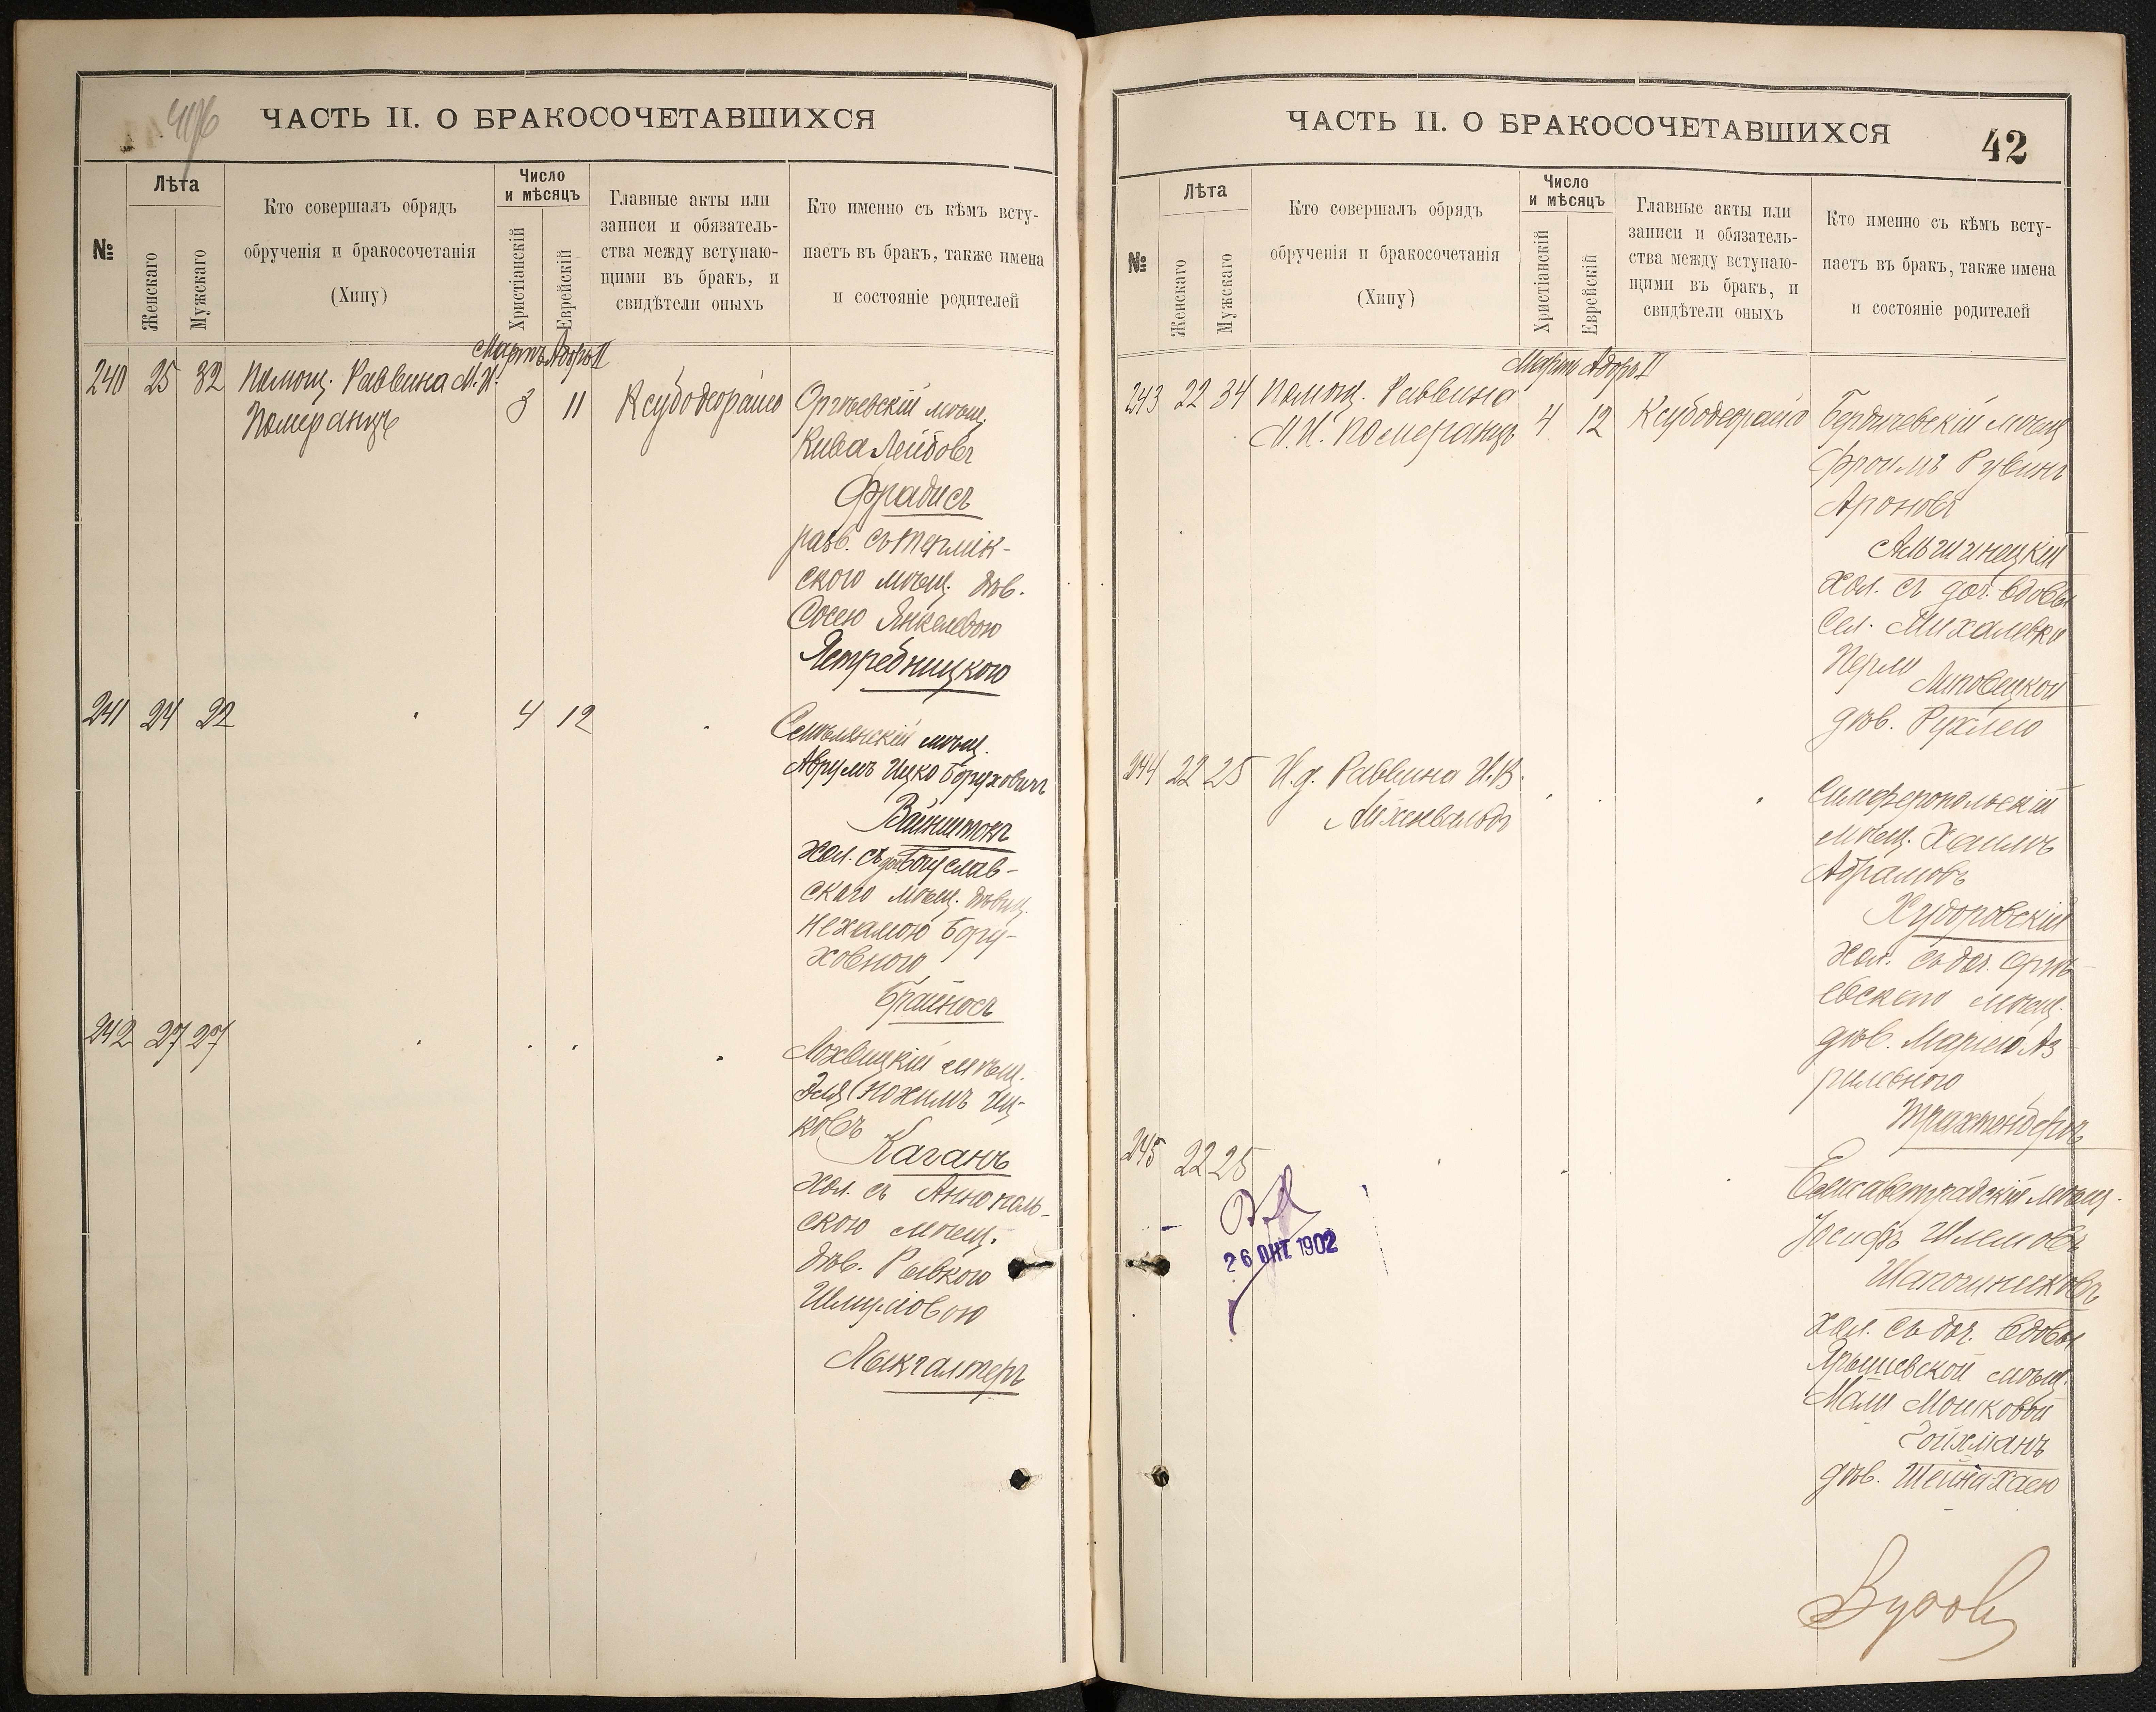 ЧАСТЬ II. О БРАКОСОЧЕТАВШИХСЯ
№
Лѣта
Женскаго
Мужскаго
Кто совершалъ обрядъ
обрученія и бракосочетанія
(Хипу)
Число
и мѣсяцъ
Христіанскій
Еврейскій
Главные акты или
записи и обязатель-
ства между вступаю-
щими въ бракъ, и
свидѣтели оныхъ
Кто именно съ кѣмъ всту-
паетъ въ бракъ, также имена
и состояніе родителей
Мартъ Адоръ II
240 25 32 Помощ. Раввина М. И.
Померанцъ
3 11
Ксубодеорайсо
Оргѣевскій мѣщ.
Кива Лейбовъ
Фрадисъ
разв. съ
ского мѣщ. дѣв.
Сосею Янкелевою
Ястребницкою
241 24 22
4 12
мѣщ.
Аврумъ Ицко Боруховичъ
Вайнштокъ
хол. съ доч. Богуслав-
скаго мѣщ. дѣвиц.
Нехамою Бору-
ховною
Брайносъ
242 27 27
Лохвицкій мѣщ.
Эля Нохимъ Иц-
ковъ
Каганъ
хол. съ Аннополь-
скою мѣщ.
дѣв. Рывкою
Шмуловою

ЧАСТЬ II. О БРАКОСОЧЕТАВШИХСЯ
42
№
Лѣта
Женскаго
Мужскаго
Кто совершалъ обрядъ
обрученія и бракосочетанія
(Хипу)
Число
и мѣсяцъ
Христіанскій
Еврейскій
Главные акты или
записи и обязатель-
ства между вступаю-
щими въ бракъ, и
свидѣтели оныхъ
Кто именно съ кѣмъ всту-
паетъ въ бракъ, также имена
и состояніе родителей
Мартъ Адоръ II
243 22 34 Помощ. Раввина
М. И. Померанцъ
4 12
Ксубодеорайсо
Бердичевскій мѣщ
Фроимъ Рувинъ
Ароновъ
хол. съ доч. вдовы
Сел. Михалевки
Перли Липовецкой
дѣв. Рухлею
244 22 25 И. д. Раввина И. В.
Айхенвальдъ
Симферопольскій
мѣщ. Хаимъ
Абрамовъ
Худоровскій
хол. съ доч. Оргѣ-
евскаго мѣщ.
дѣв. Маріею Аз-
рилевною
Трахтенберъ
245 22 25
Елисаветградскій мѣщ.
Іосифъ Шлемовъ
Шапочниковъ
хол. съ доч. вдовы
Ярышевской мѣщ.
Мали Мошковой
Гойхманъ
дѣв. Шейна-Хаею
26 ОКТ. 1902